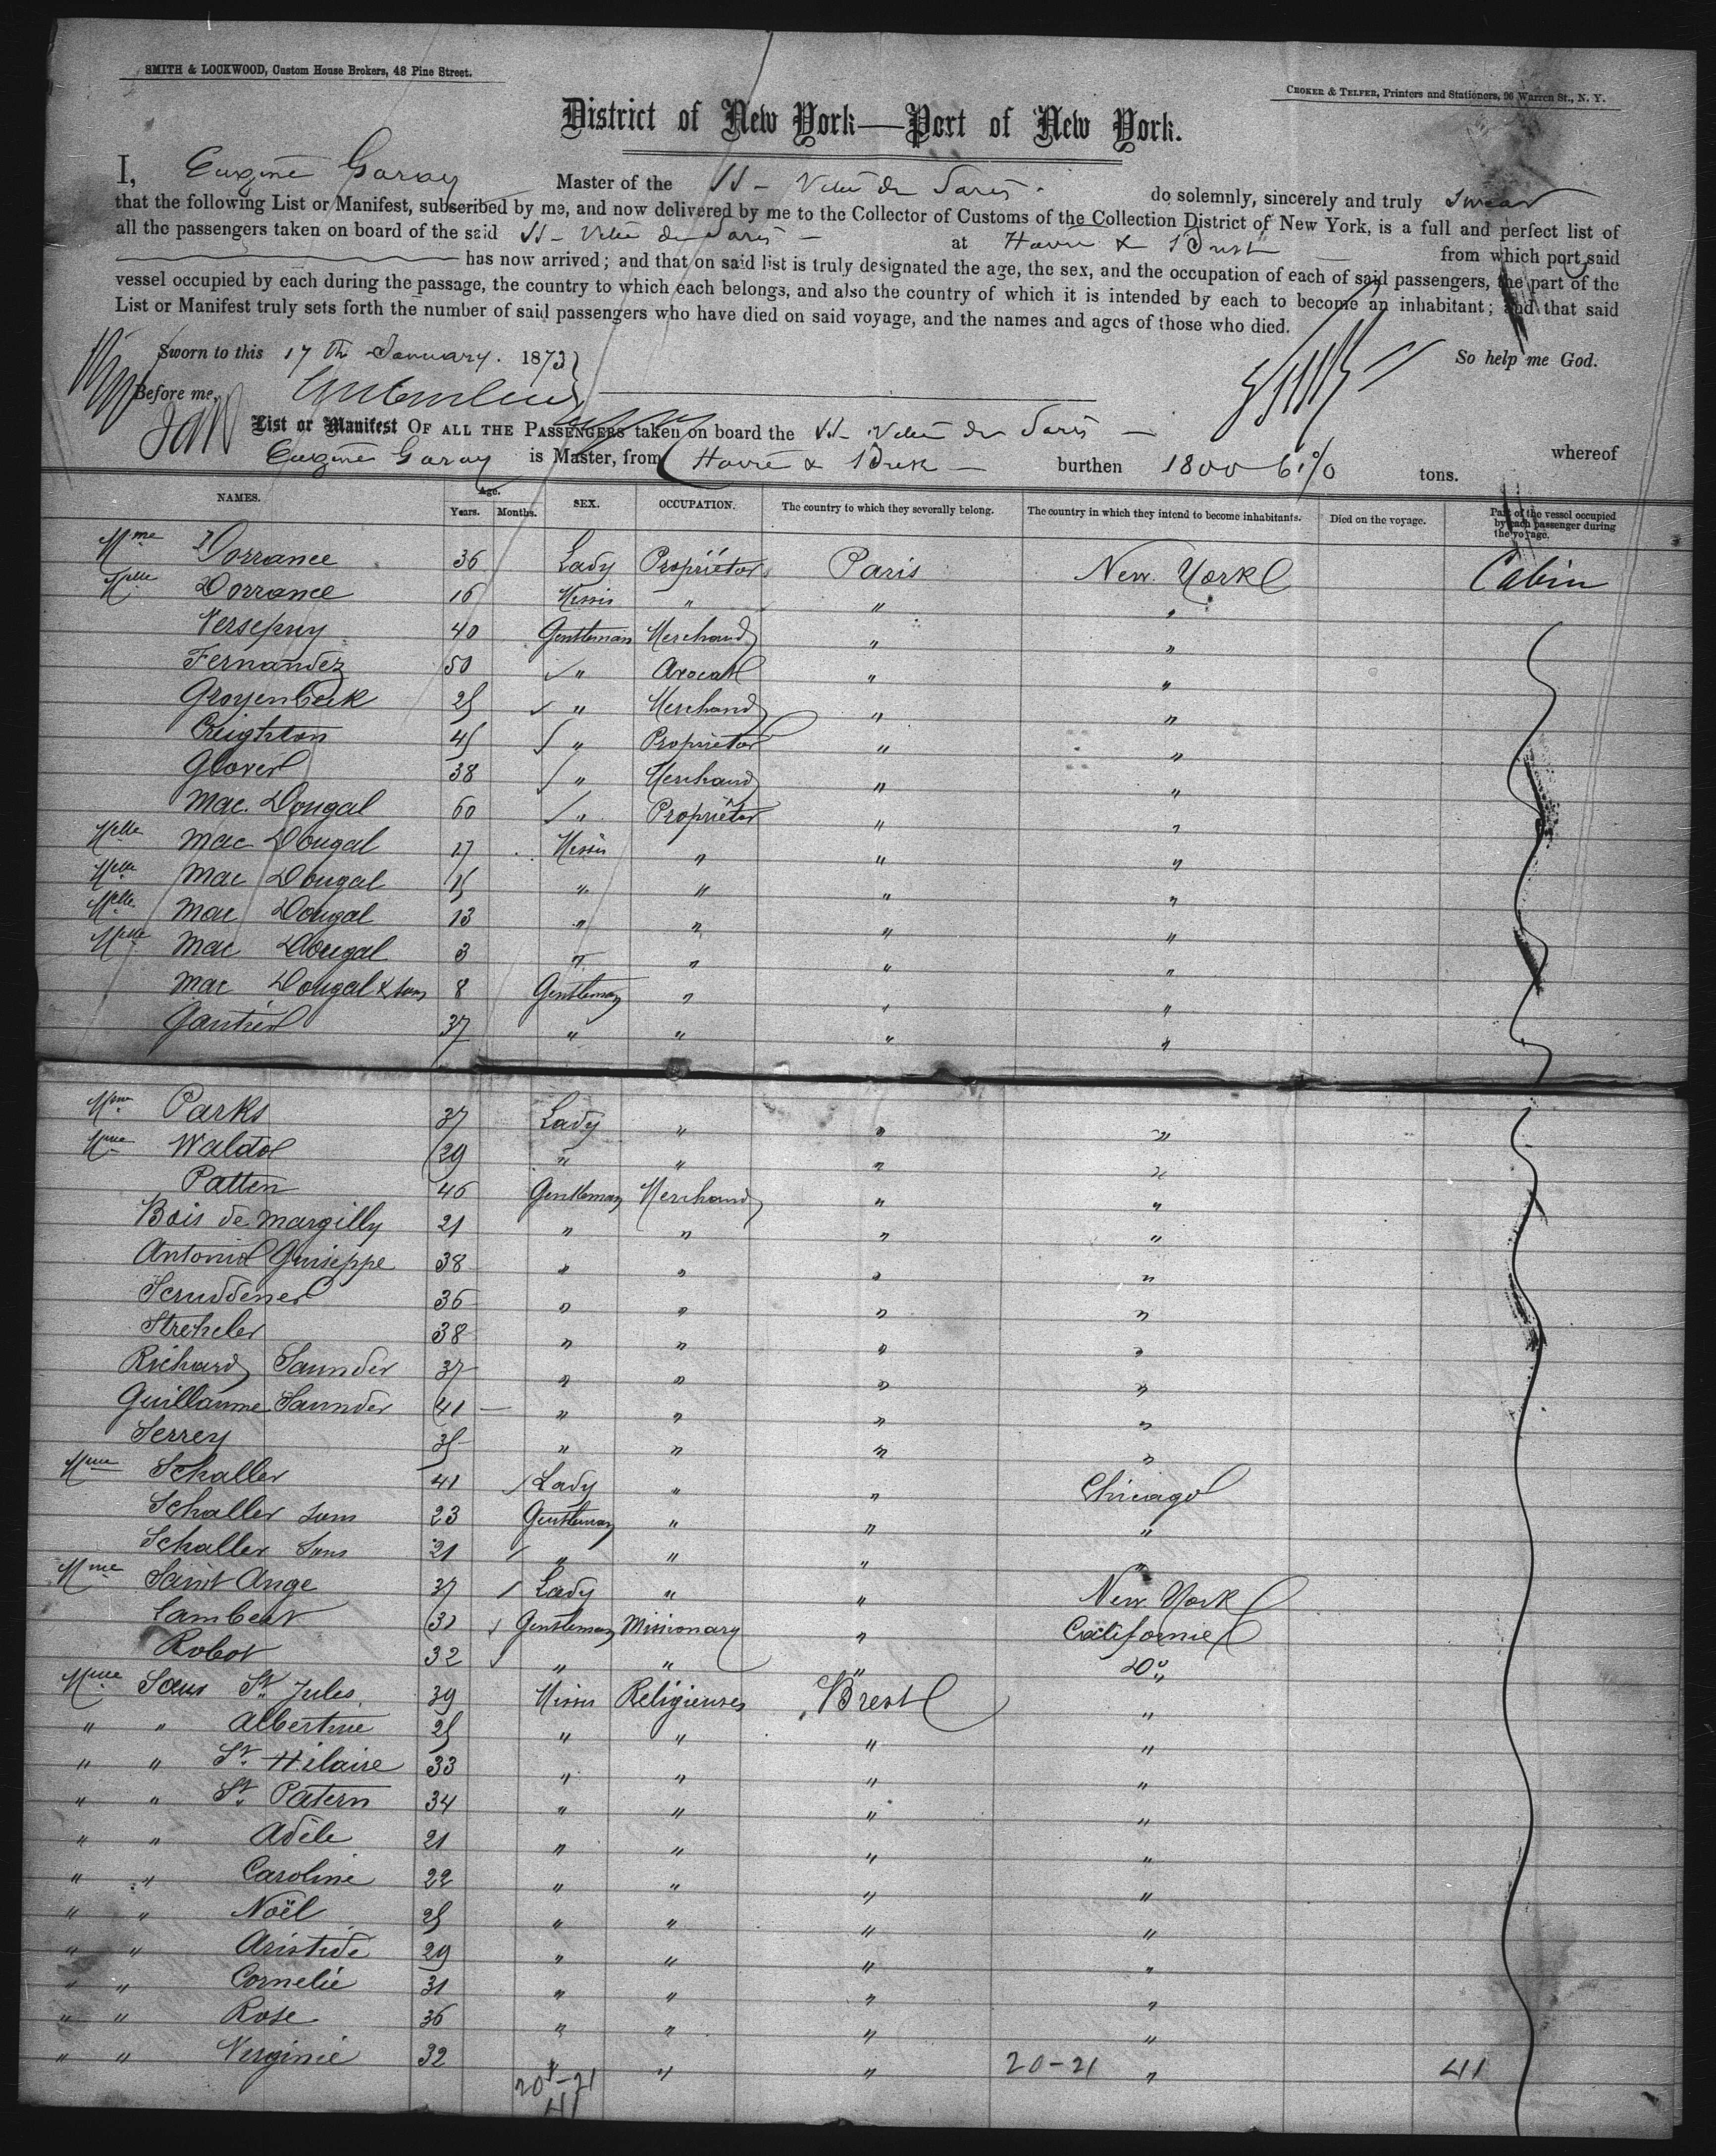 SMITH & LOCKWOOD, Custom House Brokers, 48 Pine Street.
CROKER & TELFER, Printers and Stationers, 96 Warren St., N. Y.
District of New York—Port of New York.
I, Eugène Garay Master of the SS - Ville de Paris - do solemnly, sincerely and truly swear
that the following List or Manifest, subscribed by me, and now delivered by me to the Collector of Customs of the Collection District of New York, is a full and perfect list of
all the passengers taken on board of the said SS - Ville de Paris - at Havre & Brest from which port said
has now arrived; and that on said list is truly designated the age, the sex, and the occupation of each of said passengers, the part of the
vessel occupied by each during the passage, the country to which each belongs, and also the country of which it is intended by each to become an inhabitant; and that said
List or Manifest truly sets forth the number of said passengers who have died on said voyage, and the names and ages of those who died.
Sworn to this 17 th January. 1873 So help me God.
Before me,
List or Manifest OF ALL THE PASSENGERS taken on board the SS - Ville de Paris - whereof
Eugène Garay is Master, from Havre & Brest - burthen 1800 tons.
NAMES. Age. Years. Months. SEX. OCCUPATION. The country to which they severally belong. The country in which they intend to become inhabitants. Died on the voyage. Part of the vessel occupied by each passenger during the voyage.
Mme Dorrance 36 Lady Proprietor Paris New York Cabin
Melle Dorrance 16 Missis " " "
Versepuy 40 Gentleman Merchand " "
Fernandez 50 " Avocat " "
Groyenbeek 25 " Merchand " "
Creighton 45 " Proprietor " "
Glover 38 " Merchand " "
Mac. Dougal 60 " Proprietor " "
Melle Mac Dougal 17 Missis " " "
Melle Mac Dougal 15 " " " "
Melle Mac Dougal 13 " " " "
Melle Mac Dougal 3 " " " "
Mac Dougal & sons 8 Gentleman " " "
Gautier 37 " " " "
Mme Parks 37 Lady " " "
Mme Waldo 29 " " " "
Patten 46 Gentleman Merchand " "
Bois de Margilly 21 " " " "
Antonio Guiseppe 38 " " " "
Scruddener 36 " " " "
Streheler 38 " " " "
Richard Saunder 37 " " " "
Guillaume Saunder 41 " " " "
Serrey 35 " " " "
Mme Schaller 41 Lady " " Chicago
Schaller sons 23 Gentleman " " "
Schaller sons 21 " " " "
Mme Saint Ange 37 Lady " " New York
Lambert 32 Gentleman Missionary " Californie
Robot 32 " " " Do
Mme Sœur St Jules 39 Missis Religieuses Brest "
" " Albertine 25 " " " "
" " St Hilaire 33 " " " "
" " St Patern 34 " " " "
" " Adèle 21 " " " "
" " Caroline 22 " " " "
" " Noël 25 " " " "
" " Aristide 29 " " " "
" " Cornelie 31 " " " "
" " Rose 36 " " " "
" " Virginie 32 " " " "
20-21 20-21 41
41